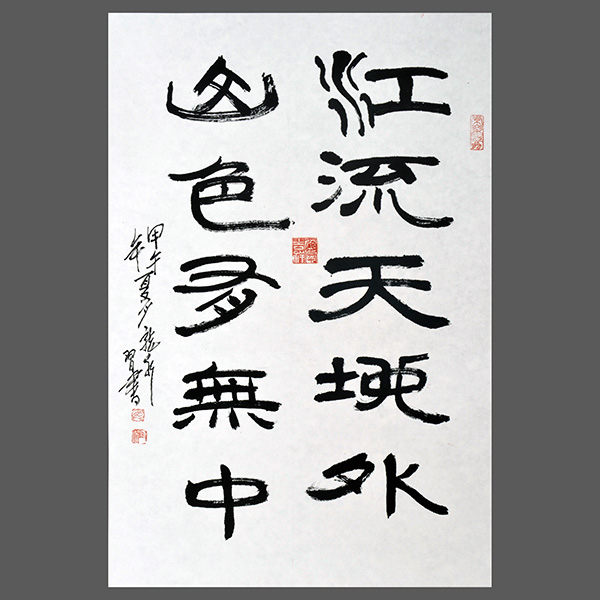 江流天地外
山色多無中
甲午年夏
習書